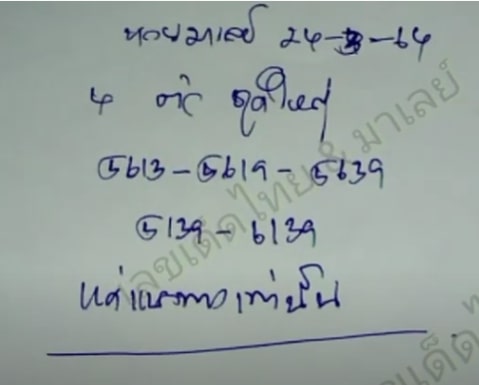 หวยมาเลย์ 24-3-64
4 ตัว ชุดใหญ่
5613 - 5619 - 5639
5139 - 6139
แค่แนวทางเท่านั้น
เลขเด็ดไทย & มาเลย์